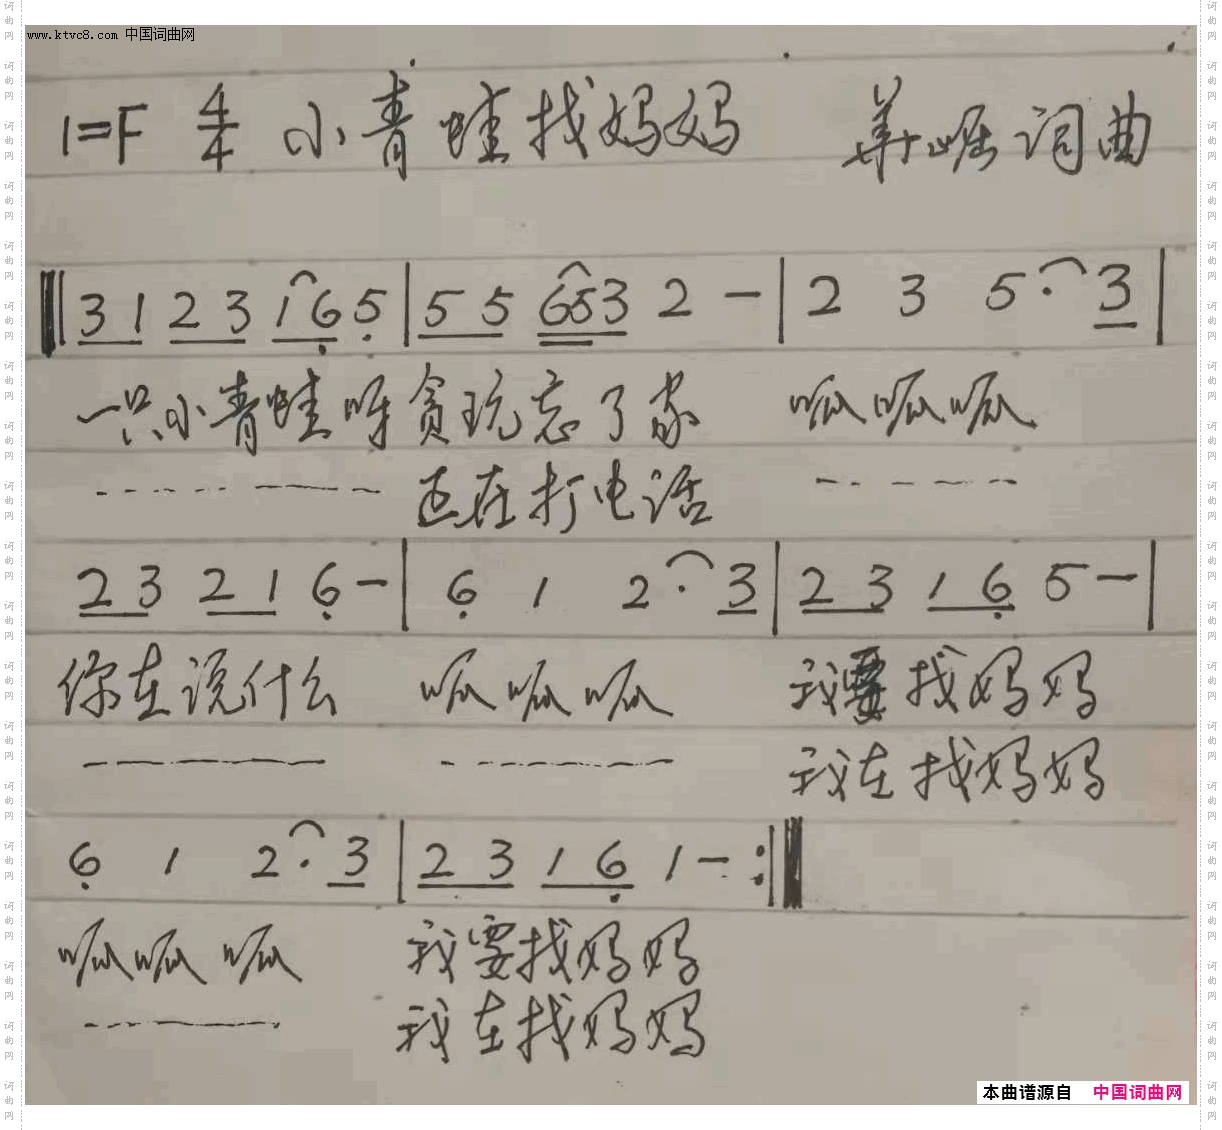 www.ktvc8.com 中国词曲网
1=F 4/4 小青蛙找妈妈 华崛词曲
3 1 2 3 1 6 5 | 5 5 6 5 3 2 - | 2 3 5 · 3 |
一只小青蛙呀 贪玩忘了家 呱呱呱
还在打电话
2 3 2 1 6 - | 6 1 2 · 3 | 2 3 1 6 5 - |
你在说什么 呱呱呱 我要找妈妈
我在找妈妈
6 1 2 · 3 | 2 3 1 6 1 - :|
呱呱呱 我要找妈妈
我在找妈妈
本曲谱源自 中国词曲网